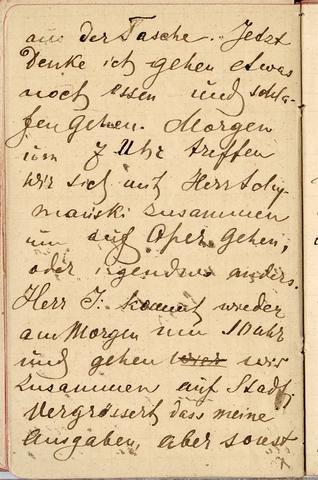 aus der Tasche. Jetzt
denke ich gehen etwas
noch essen und schla-
fen gehen. Morgen
um 7 Uhr treffen
wir sich mit Herr Schy-
manski zusammen
um auf Oper gehen,
oder irgendwo anders.
Herr J. kommt wieder
am Morgen um 10 Uhr
und gehen wir
zusammen auf Stadt,
Vergrössert dass meine
Ausgaben, aber sonst